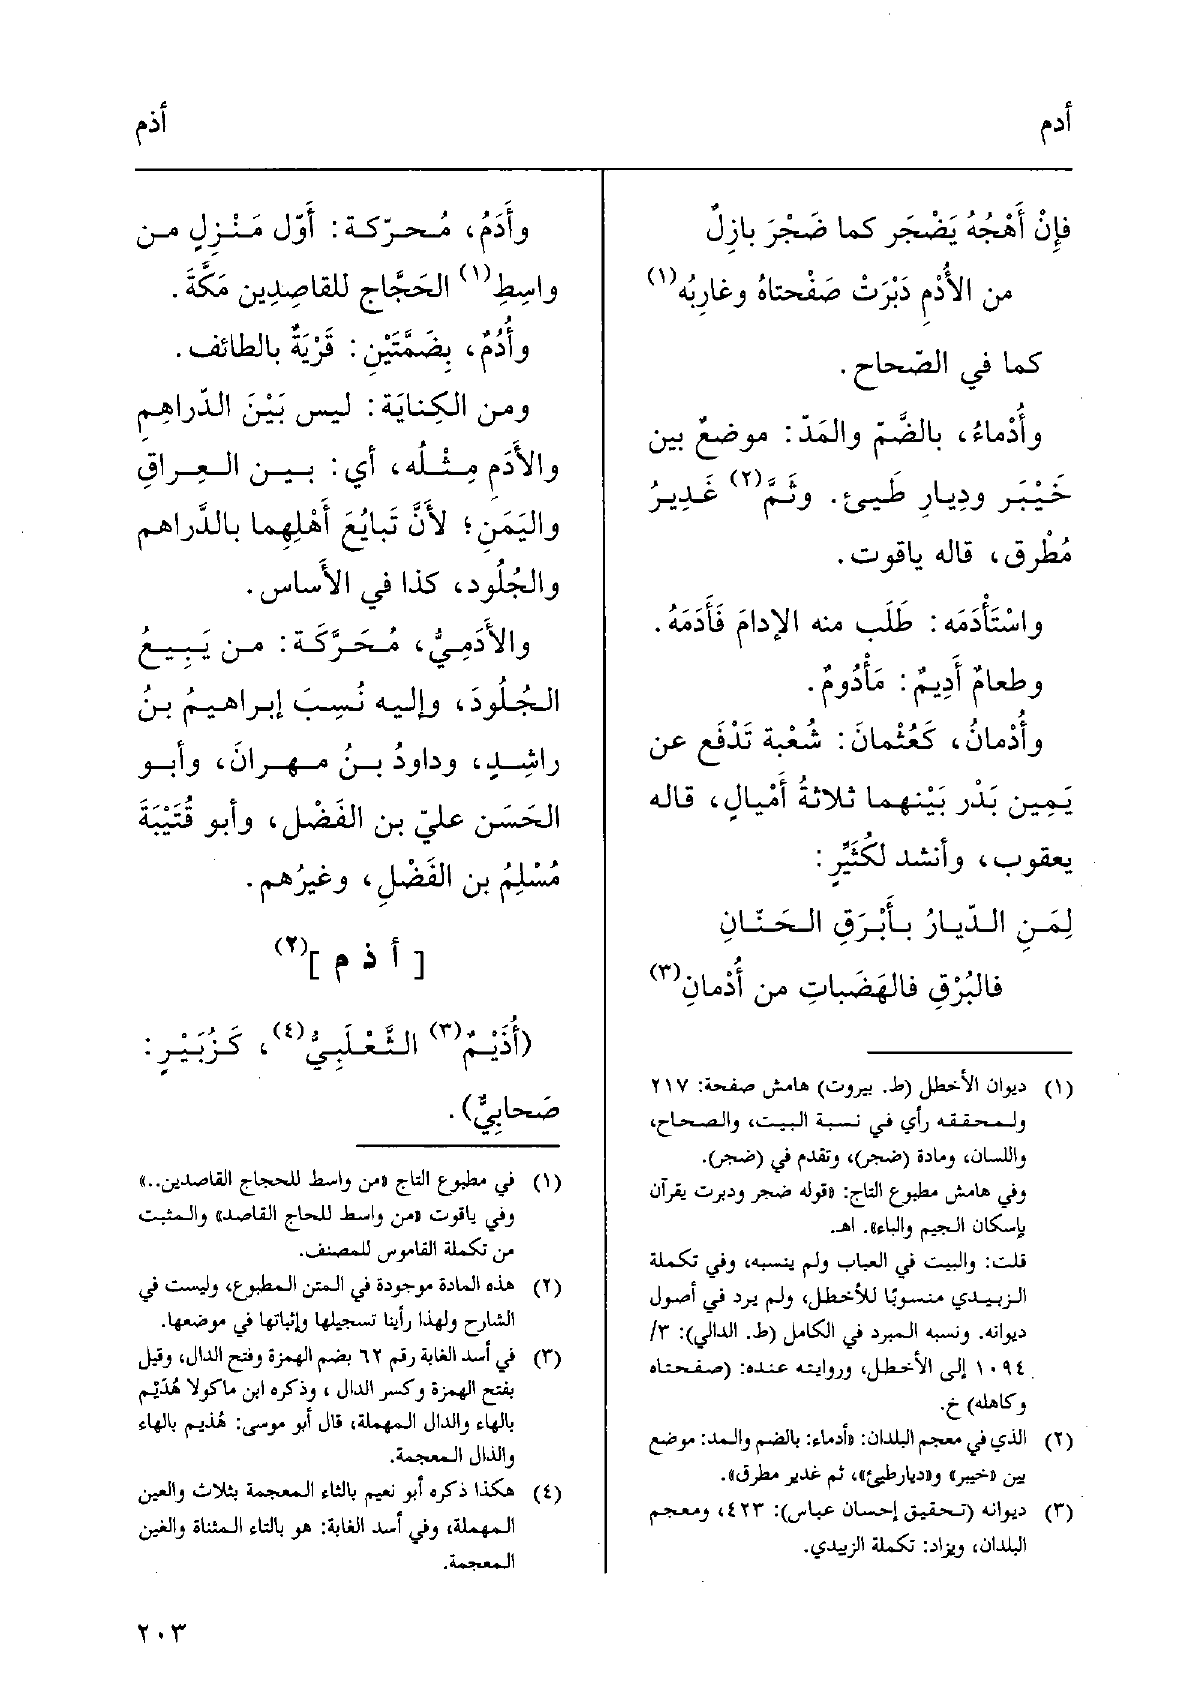 أدم
أذم
فإِنْ أَهْجُهُ يَضْجَر كما ضَجْرَ بازِلٌ
من الأُدْمِ دَبْرَتْ صَفْحتاهُ وغارِبُه(١)
كما في الصّحاح.
وأُدْماءُ، بالضَّمّ والمَدّ: موضعٌ بين
خَيْبَر ودِيارِ طَيئ. وثَمَّ(٢) غَدِيرُ
مُطْرِق، قاله ياقوت.
واسْتَأْدَمَه: طَلَب منه الإدامَ فَأَدَمَهُ.
وطعامٌ أَدِيمٌ: مَأْدُومٌ.
وأُدْمانُ، كَعُثْمانَ: شُعْبة تَدْفَع عن
يَمِين بَدْر بَيْنهما ثلاثةُ أَمْيالٍ، قاله
يعقوب، وأنشد لكُثَيِّرٍ:
لِمَنِ الدّيارُ بأَبْرَقِ الحَنّانِ
فالبُرْقِ فالهَضَباتِ من أُدْمانِ(٣)
(١) ديوان الأخطل (ط. بيروت) هامش صفحة: ٢١٧
ولمحققه رأي في نسبة البيت، والصحاح،
واللسان، ومادة (ضجر)، وتقدم في (ضجر).
وفي هامش مطبوع التاج: «قوله ضجر ودبرت يقرآن
بإسكان الجيم والباء». اهـ.
قلت: والبيت في العباب ولم ينسبه، وفي تكملة
الزبيدي منسوبًا للأخطل، ولم يرد في أصول
ديوانه. ونسبه المبرد في الكامل (ط. الدالي): ٣/
١٠٩٤ إلى الأخطل، وروايته عنده: (صفحتاه
وكاهله) خ.
(٢) الذي في معجم البلدان: «أدماء: بالضم والمد: موضع
بين «خيبر» و«ديارطيئ»، ثم غدير مطرق».
(٣) ديوانه (تحقيق إحسان عباس): ٤٢٣، ومعجم
البلدان، ويزاد: تكملة الزبيدي.
وأَدَمُ، مُحرّكة: أَوّل مَنْزِلٍ من
واسِطِ(١) الحَجَّاج للقاصِدِين مَكَّةَ.
وأُدُمٌ، بِضَمَّتَيْنِ: قَرْيَةٌ بالطائف.
ومن الكِنايَة: ليس بَيْنَ الدّراهِمِ
والأَدَم مِثْلُه، أي: بين العِراقِ
واليَمَنِ؛ لأَنَّ تَبايُعَ أَهْلِهِما بالدَّراهم
والجُلُود، كذا في الأَساس.
والأَدَمِيُّ، مُحَرَّكَة: من يَبِيعُ
الجُلُودَ، وإليه نُسِبَ إبراهيمُ بنُ
راشِدٍ، وداودُ بنُ مهرانَ، وأبو
الحَسَن عليّ بن الفَضْل، وأبو قُتَيْبَةَ
مُسْلِمُ بن الفَضْلِ، وغيرُهم.
[ أ ذ م ](٢)
(أُذَيْمٌ(٣) الثَّعْلَبِيُّ(٤)، كَزُبَيْرٍ:
صَحابِيٌّ).
(١) في مطبوع التاج «من واسط للحجاج القاصدين..»
وفي ياقوت «من واسط للحاج القاصد» والمثبت
من تكملة القاموس للمصنف.
(٢) هذه المادة موجودة في المتن المطبوع، وليست في
الشارح ولهذا رأينا تسجيلها وإثباتها في موضعها.
(٣) في أسد الغابة رقم ٦٢ بضم الهمزة وفتح الدال، وقيل
بفتح الهمزة وكسر الدال ، وذكره ابن ماكولا هُدَيْم
بالهاء والدال المهملة، قال أبو موسى: هُذيم بالهاء
والذال المعجمة.
(٤) هكذا ذكره أبو نعيم بالثاء المعجمة بثلاث والعين
المهملة، وفي أسد الغابة: هو بالتاء المثناة والغين
المعجمة.
٢٠٣